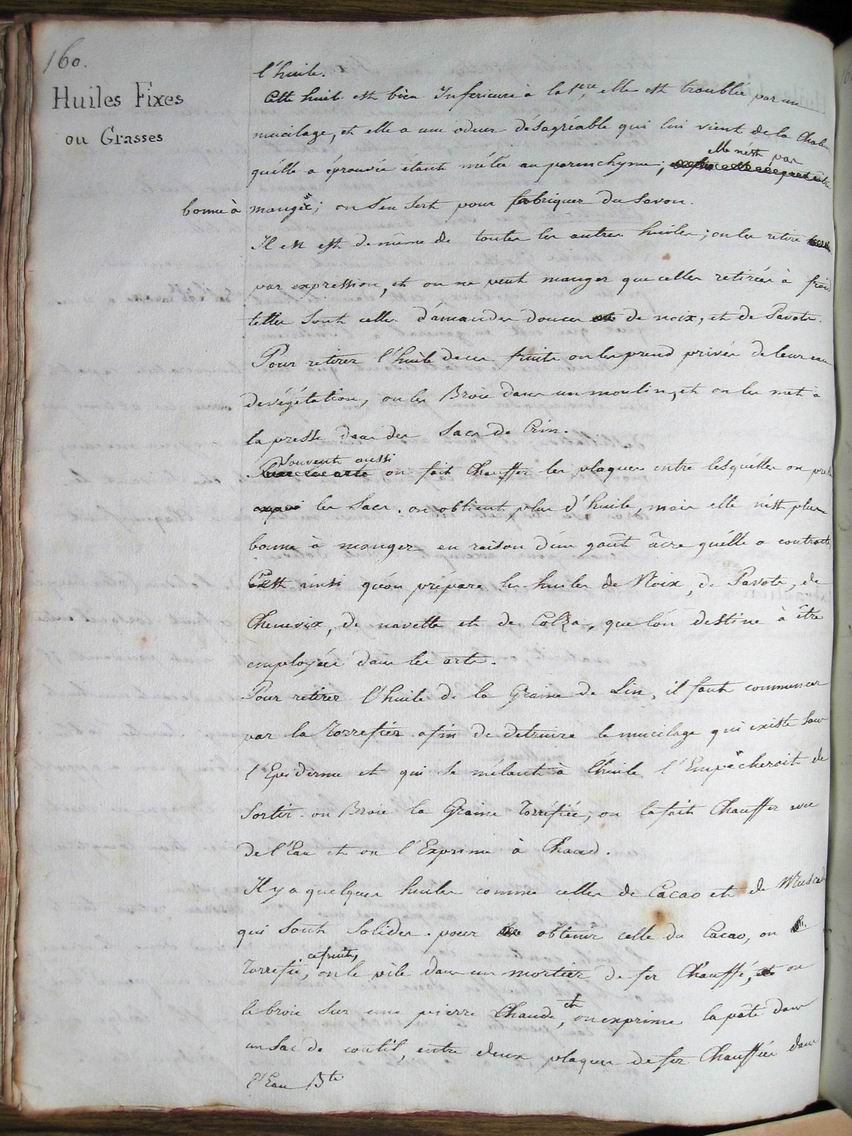 160.
Huiles Fixes
ou Grasses
l'huile.
Cette huile est bien Inferieure à la 1ere, elle est troublée par un
mucilage, et elle a une odeur desagréable qui lui vient de la Chaleur
quélle a éprouvée étant mélée au parenchyme; Elle n'est pas
bonne à manger; on s'en sert pour fabriquer du Savon.
Il en est de même de toutes les autres huiles; on les retire
par expression, et on ne peut manger que celles retirées à froid
telles sont celles d'amandes douces de noix, et de Pavots.
Pour retirer l'huile de ces fruits on les prend privés de leur eau
de végétation, on les Broie dans un moulin, et on les met à
la presse dans des Sacs de Crin.
Souvent aussi on fait Chauffer les plaques entre lesquelles on presse
les Sacs. on obtient plus d'huile, mais elle n'est plus
bonne à manger en raison d'un goût âcre quélle a contracté
C'est ainsi qu'on prépare les huiles de Noix, de Pavots, de
Chenevix, de navette et de Calza, que l'on destine à être
employées dans les arts.
Pour retirer l'huile de la Graine de Lin, il faut commencer
par la Torrefier afin de detruire le mucilage qui existe sous
l'Epiderme et qui se mélant à l'huile l'Empêcheroit de
Sortir. on Broie la Graine Torréfiée, on la fait Chauffer avec
de l'Eau et on l'Exprime à Chaud.
Il y a quelques huiles comme celles de Cacao et de Muscade
qui sont Solides. pour obtenir celle du Cacao, on
Torrefie, ce fruit, on le pile dans un mortier de fer Chauffé, on
le broie sur une pierre Chaude, et on exprime la pâte dans
un Sac de coutil, entre deux plaques de fer Chauffées dans
l'Eau Bte